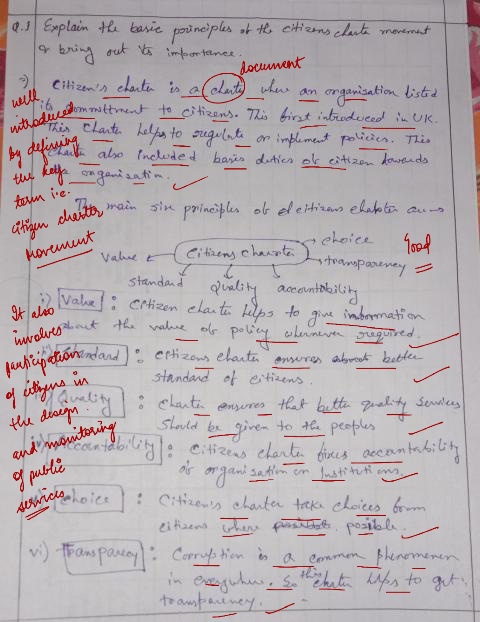 Q.1 Explain the basic principles of the citizens charter movement
& bring out its importance.
document
⇒) Citizen's charter is a charter where an organisation listed
its committment to citizens. This first introduced in UK.
This charter helps to regulate or implement policies. This
charter also included basic duties of citizen towards
organisation.
well
introduced
by defining
the key
term i.e.
citizen charter
movement
The main six principles of citizens charter are
Value
Citizens Charter
choice
transparency
Good
standard
Quality
accountability
i) Value : Citizen charter helps to give information
about the value of policy whenever required.
Standard : Citizens charter ensures about better
standard of citizens.
Quality : Charter ensures that better quality services
should be given to the peoples
Accountability : Citizens charter fixes accountability
of organisation or Institutions.
Choice : Citizen's charter take choices from
citizens where possible possible.
vi) Transparecy : Corruption is a common phenomenon
in everywhere. So this charter helps to get
transparency.
It also
involves
participation
of citizens in
the design
and monitoring
of public
services